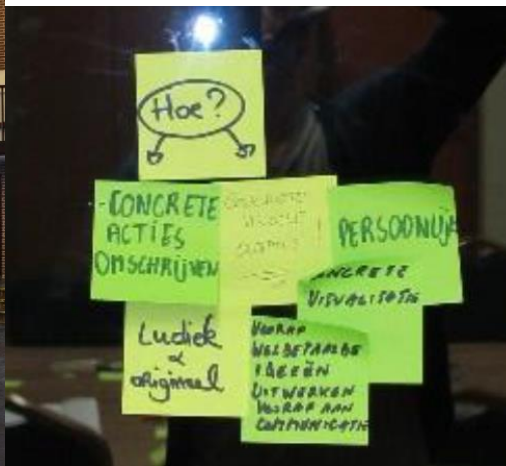 Hoe?
- CONCRETE
ACTIES
OMSCHRIJVEN
PERSOONLIJK
CONCRETE
VISUALISATIE
Ludiek
&
origineel
VOORAF
WELBEPAALDE
IDEEËN
UITWERKEN
VOORAF AAN
COMMUNICATIE